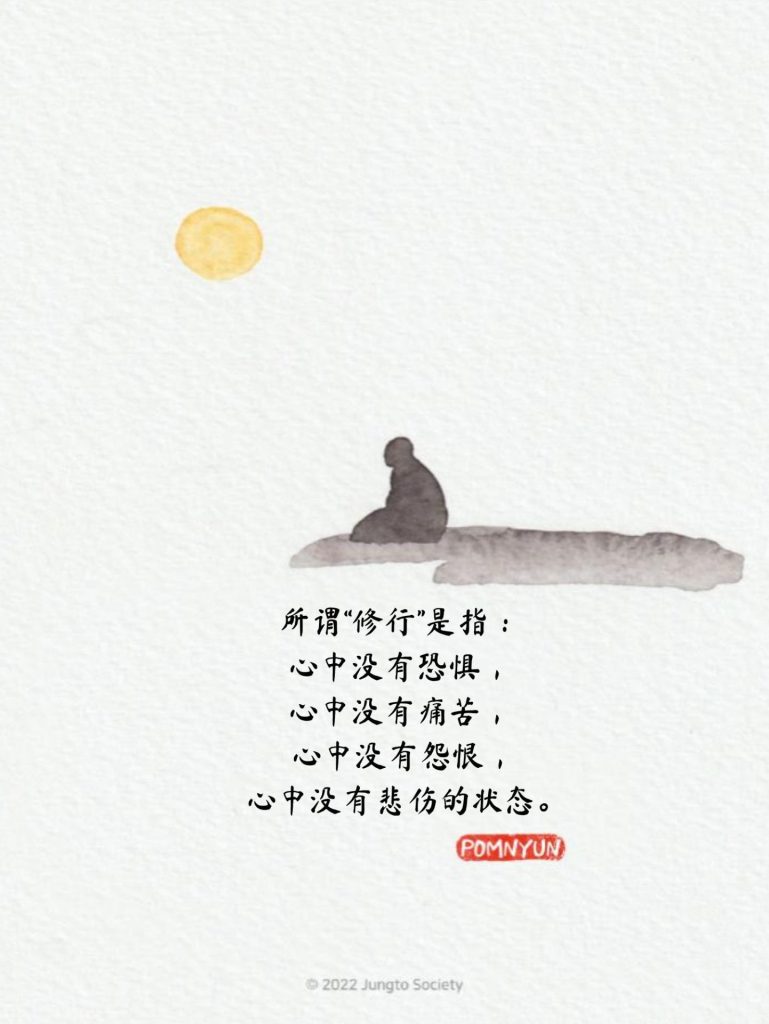 所谓“修行”是指：
心中没有恐惧，
心中没有痛苦，
心中没有怨恨，
心中没有悲伤的状态。
POMNYUN
© 2022 Jungto Society